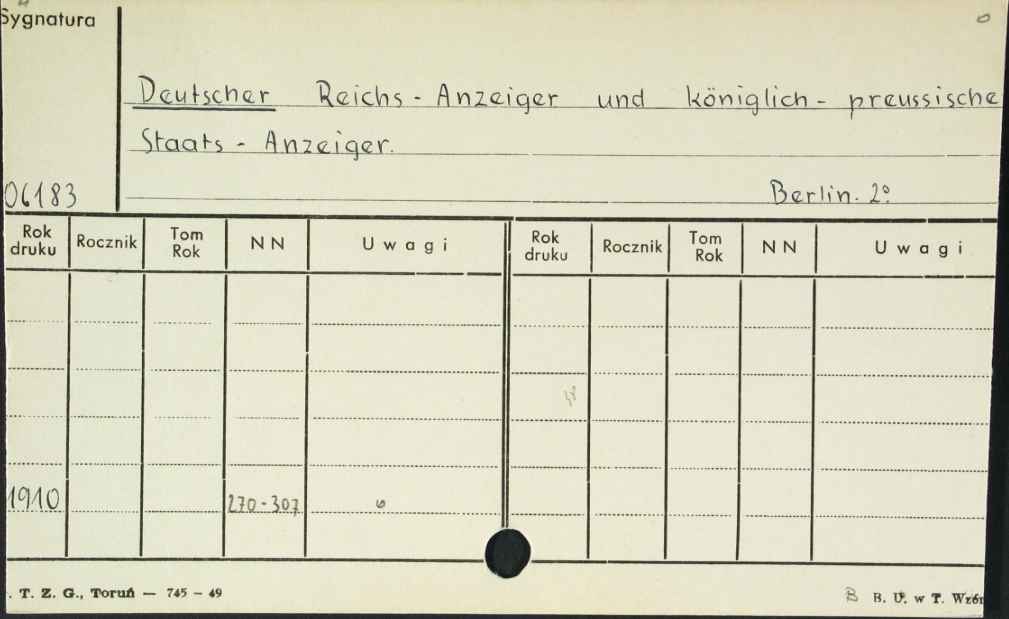 Sygnatura
Deutscher Reichs - Anzeiger und königlich - preussische
Staats - Anzeiger.
06183
Berlin. 2°
Rok druku Rocznik Tom Rok NN Uwagi Rok druku Rocznik Tom Rok NN Uwagi
1910 270-307
. T. Z. G., Toruń — 745 — 49
B B. U. w T. Wzór